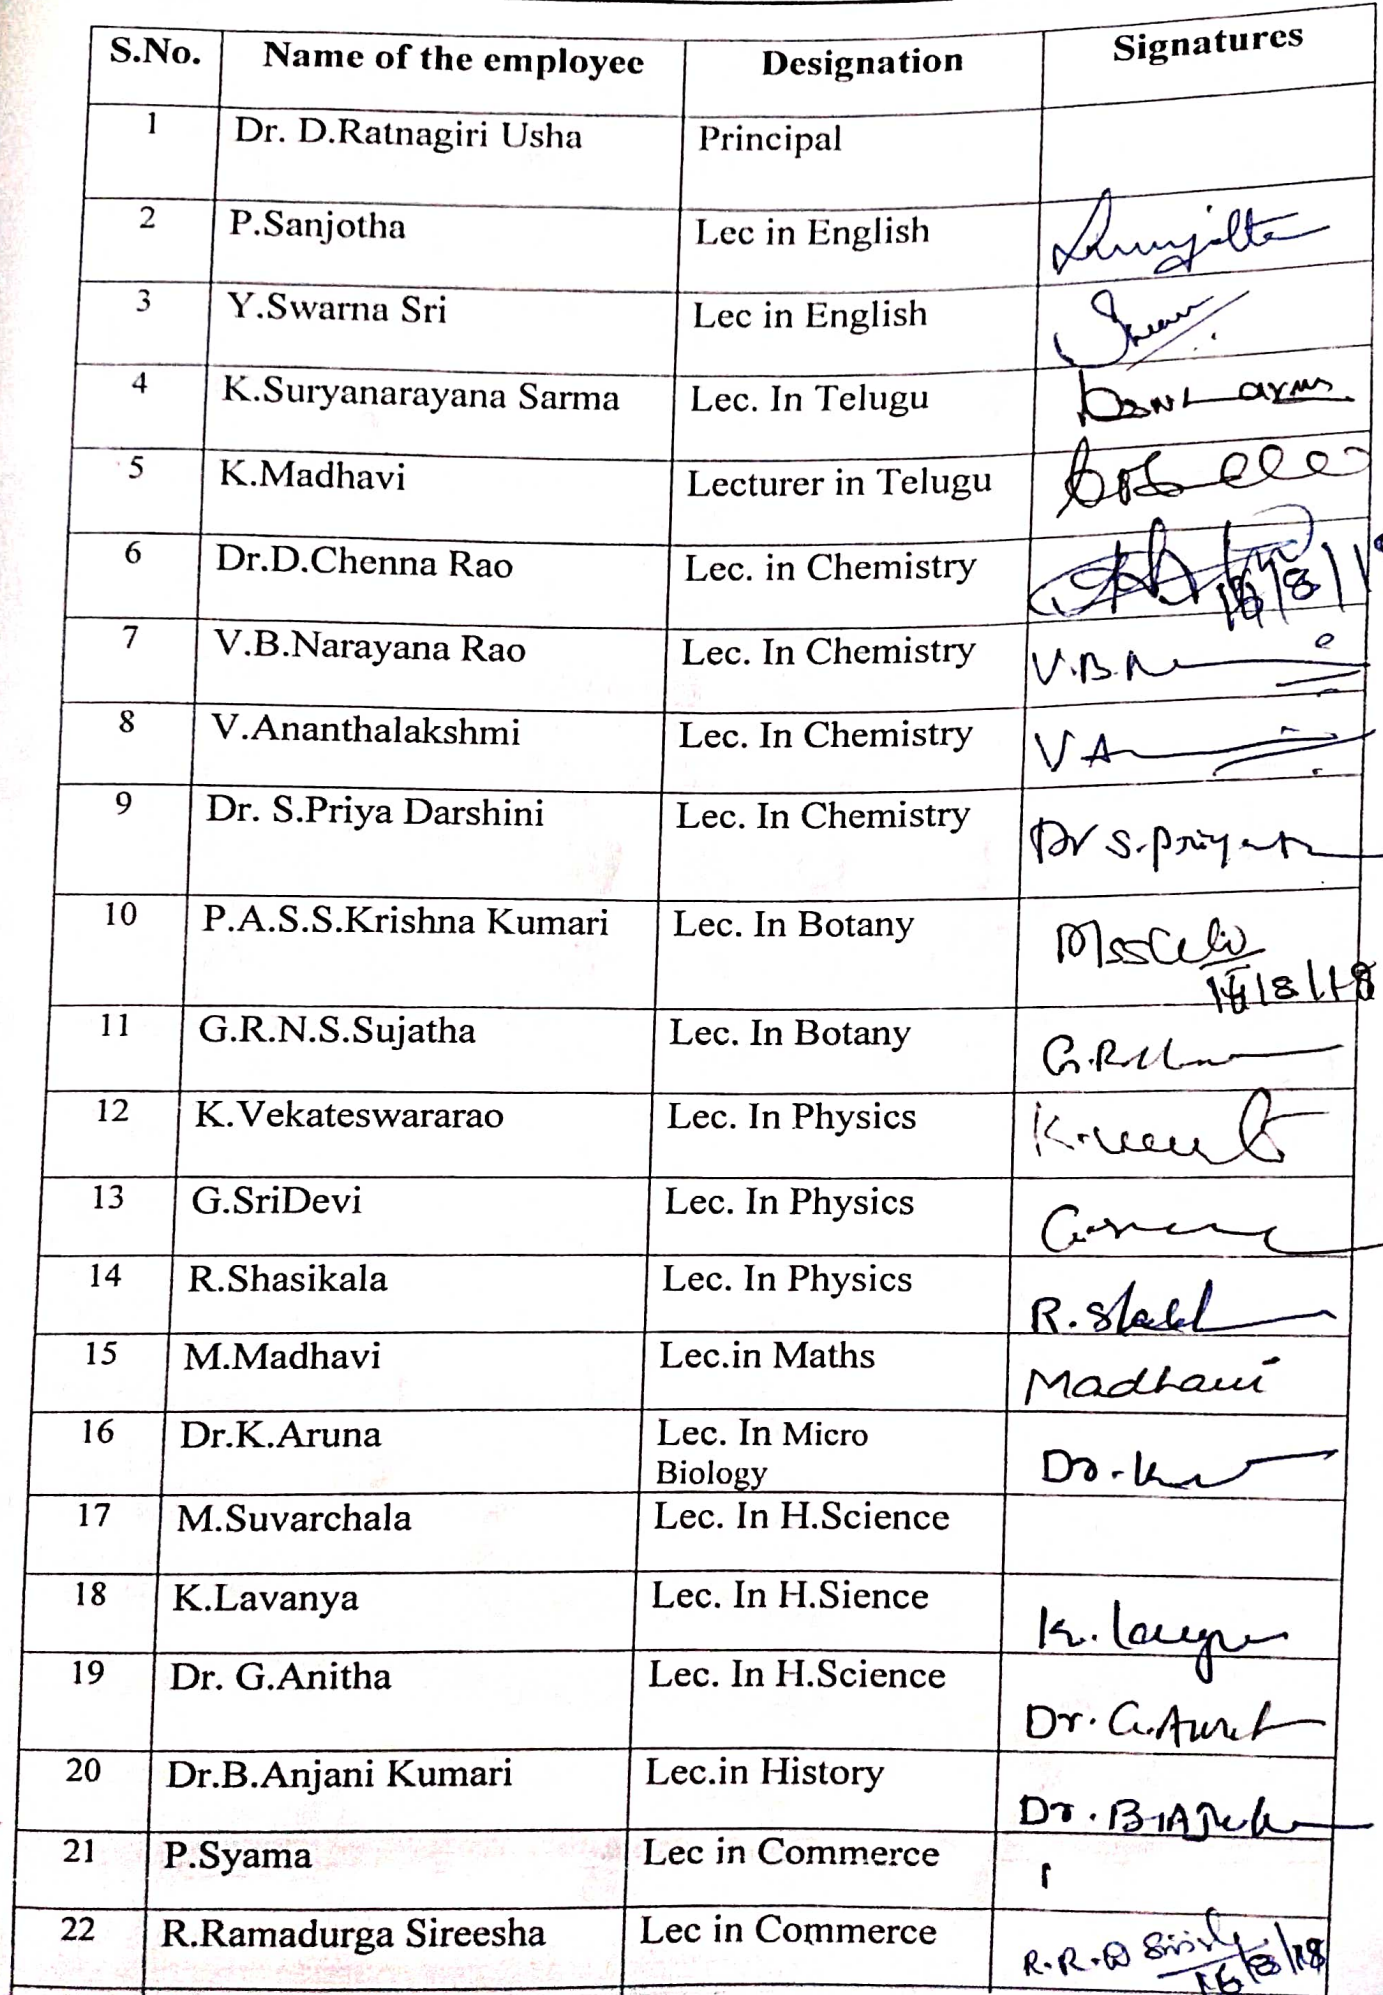 S.No. Name of the employee Designation Signatures
1 Dr. D.Ratnagiri Usha Principal
2 P.Sanjotha Lec in English
3 Y.Swarna Sri Lec in English
4 K.Suryanarayana Sarma Lec. In Telugu
5 K.Madhavi Lecturer in Telugu
6 Dr.D.Chenna Rao Lec. in Chemistry
7 V.B.Narayana Rao Lec. In Chemistry V.B.N
8 V.Ananthalakshmi Lec. In Chemistry V A
9 Dr. S.Priya Darshini Lec. In Chemistry Dr S.Priya
10 P.A.S.S.Krishna Kumari Lec. In Botany
11 G.R.N.S.Sujatha Lec. In Botany
12 K.Vekateswararao Lec. In Physics
13 G.SriDevi Lec. In Physics
14 R.Shasikala Lec. In Physics
15 M.Madhavi Lec.in Maths Madhavi
16 Dr.K.Aruna Lec. In Micro
Biology Dr.K
17 M.Suvarchala Lec. In H.Science
18 K.Lavanya Lec. In H.Sience
19 Dr. G.Anitha Lec. In H.Science
20 Dr.B.Anjani Kumari Lec.in History
21 P.Syama Lec in Commerce
22 R.Ramadurga Sireesha Lec in Commerce
16/8/18